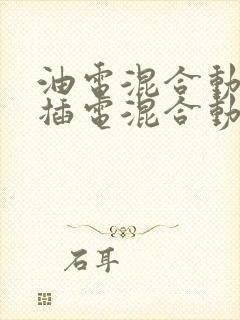 油電混合動
插電混合動
石耳